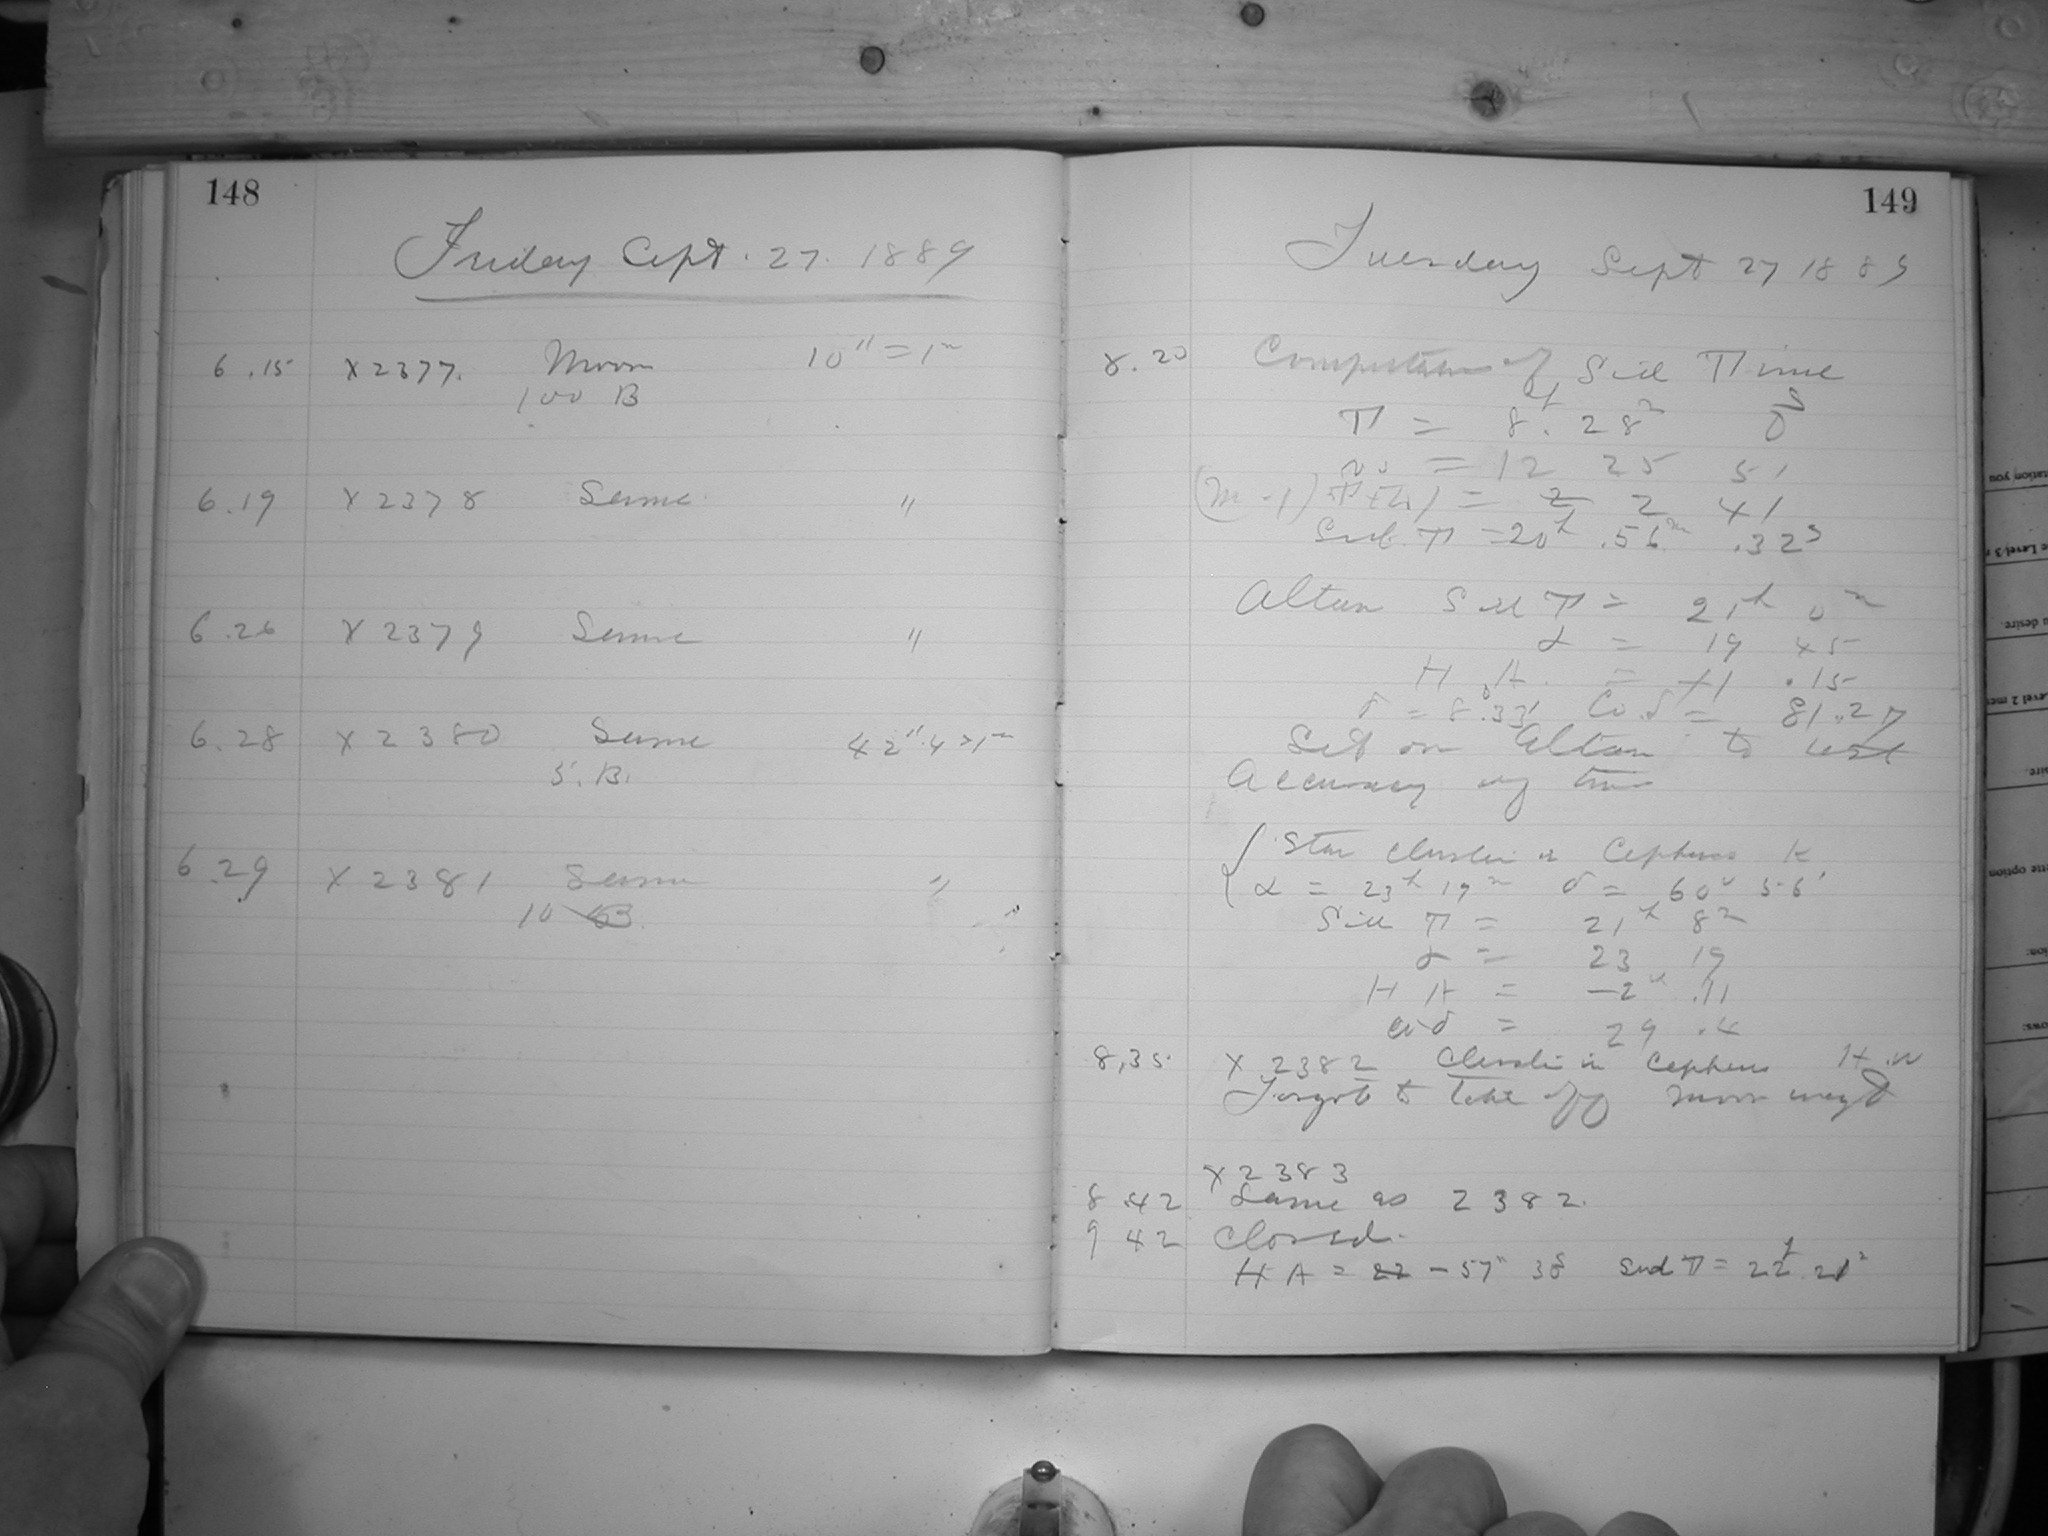 148
Friday Sept. 27. 1889
6.15 X2377. Moon 10" = 1m
100 B
6.19 X2378 Same "
6.26 X2379 Same "
6.28 X2380 Same 42".4 = 1m
5. B.
6.29 X2381 Same "
10 B.
149
Tuesday Sept 27 1889
8.20 Computation of Sid Time
T = 8h. 28m 0s
= 12 25 51
(m-1) = 2 2 41
Sid. T = 20h .56m .32s
Altair Sid T = 21h 0m
α = 19 45
H A. = +1 .15
δ = 8°.33' Co. δ = 81.27
Set on Altair to test
Accuracy of time
Star cluster in Cepheus K
α = 23h 19m δ = 60° 56'
Sid T = 21h 8m
α = 23 19
H A = -2h .11
co δ = 29 .4
8,35 X 2382 Cluster in Cepheus
Forgot to take off moon weight
X2383
8 42 Same as 2382.
9 42 Closed.
H A = 22 - 57m 38s Sid T = 22h 21m